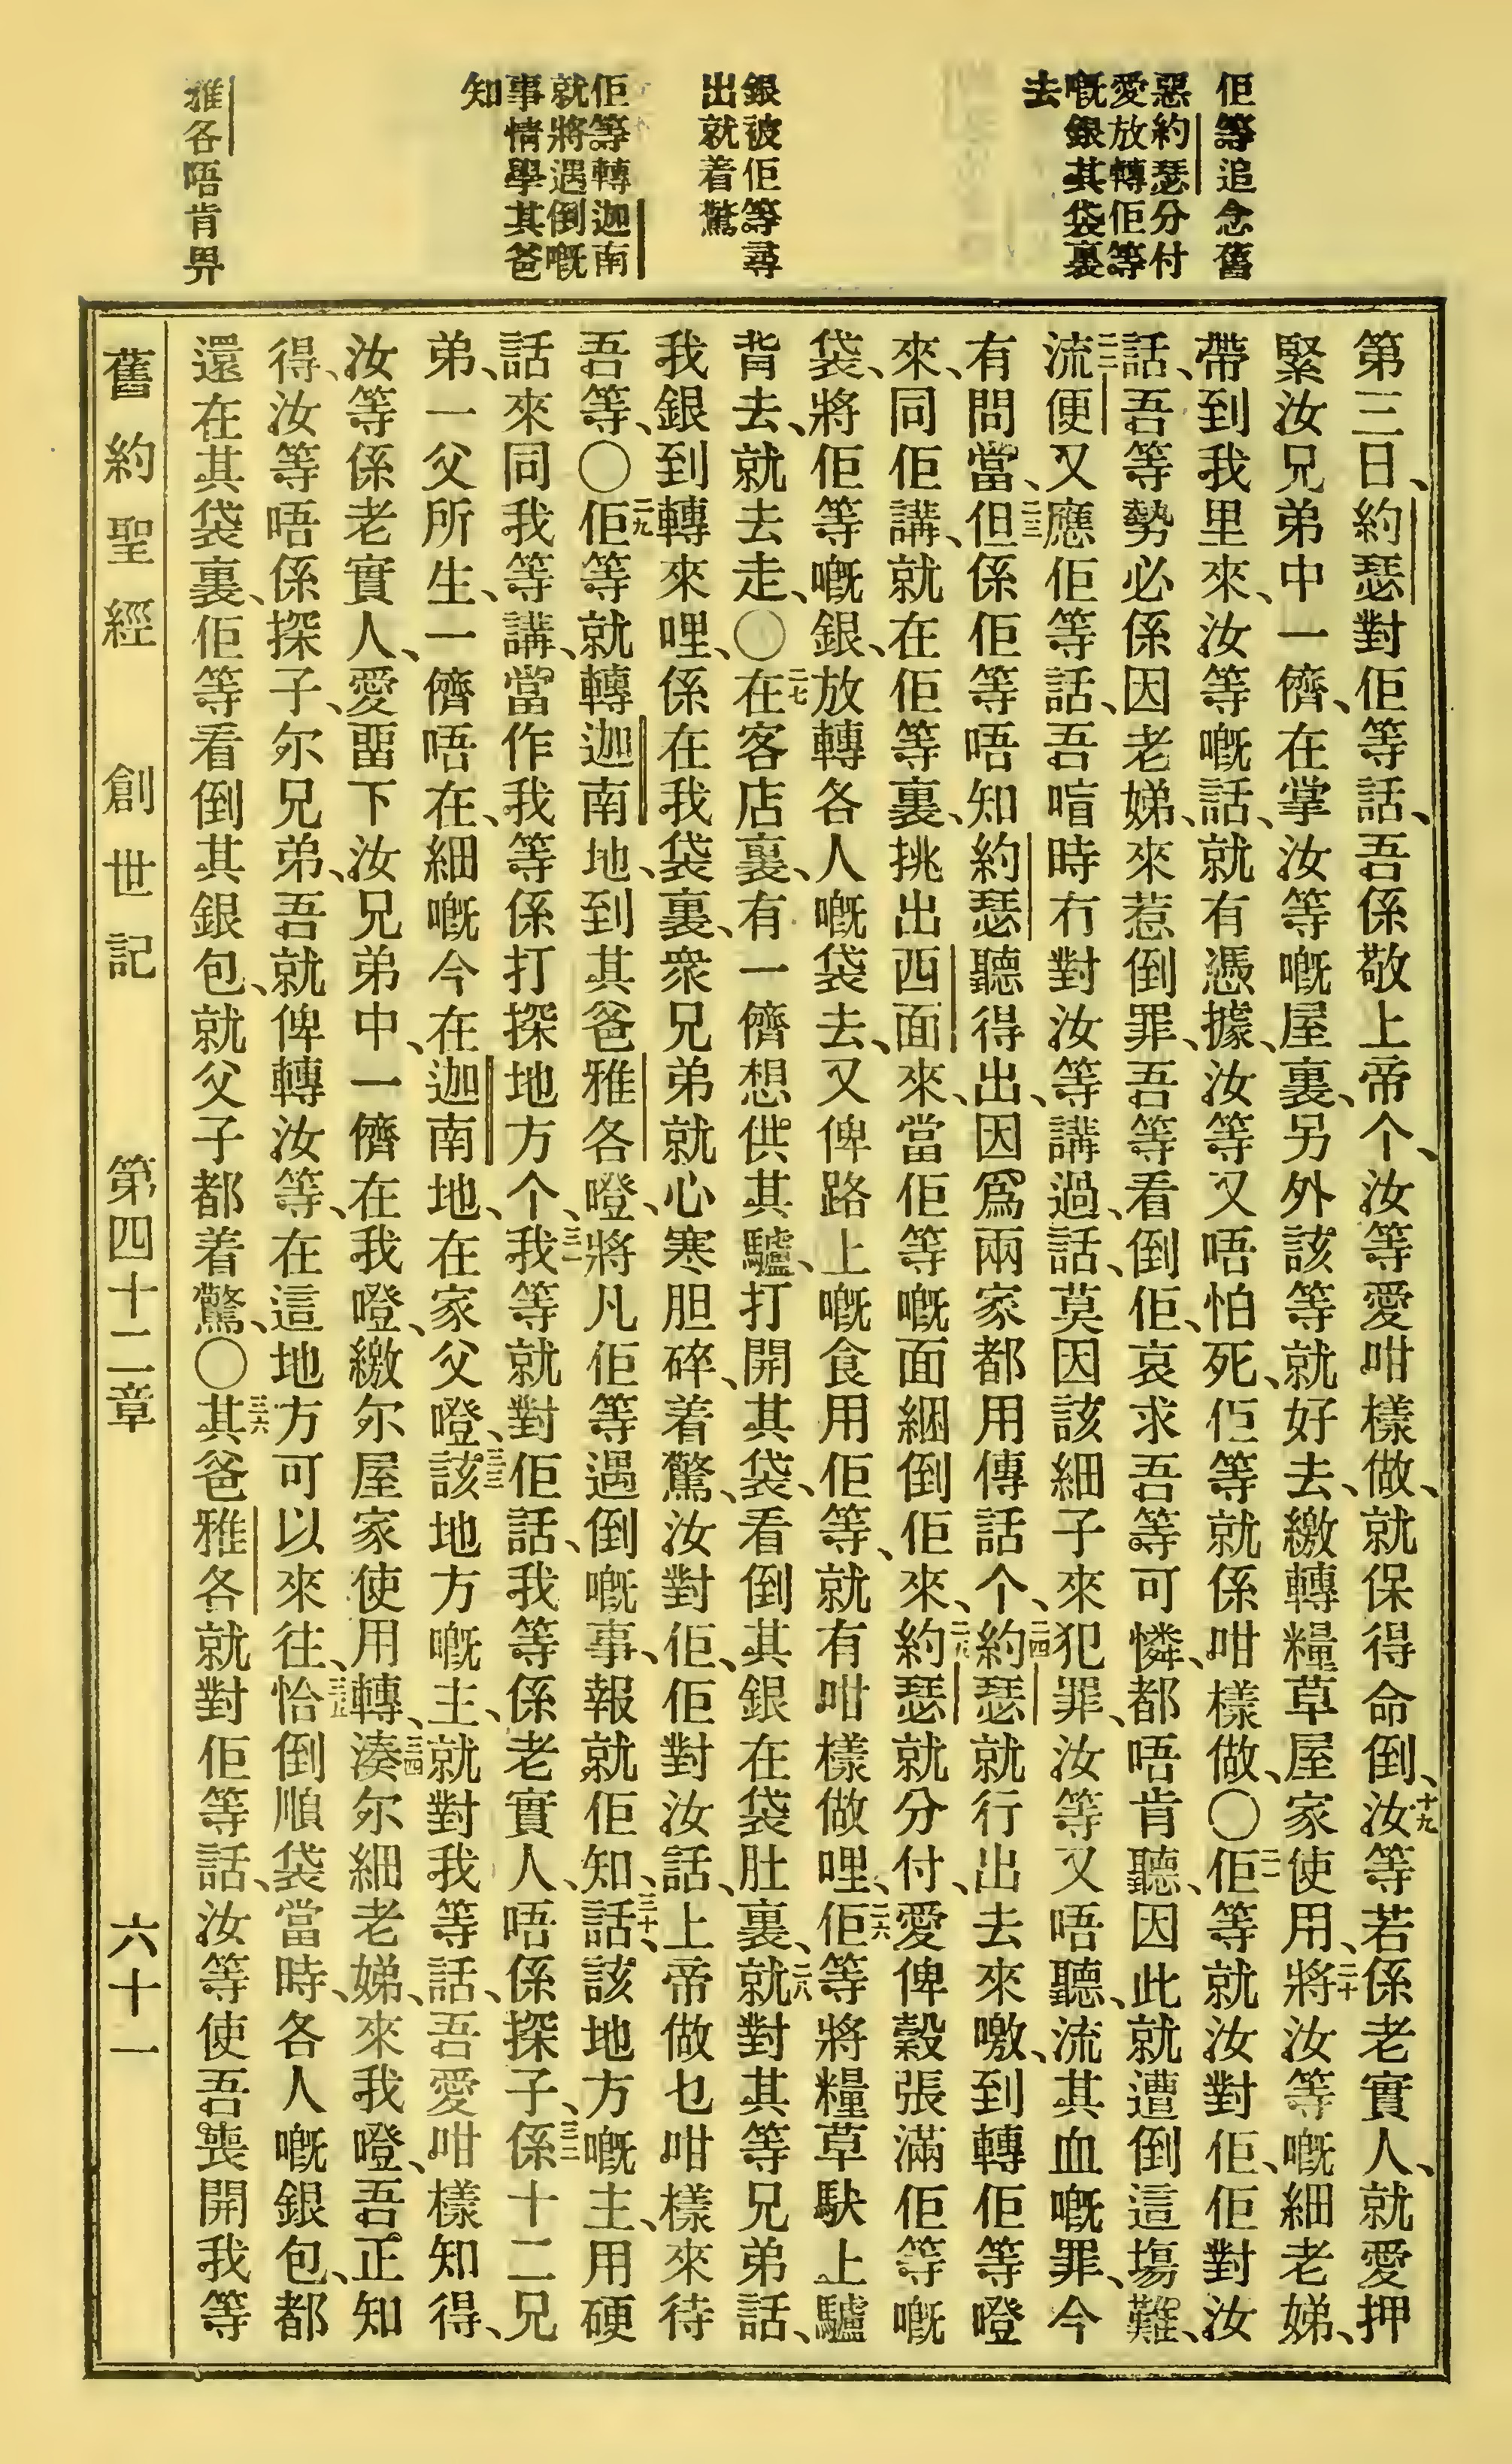 佢等追念舊
惡約瑟分付
愛放轉佢等
嘅銀其袋裏
去
銀被佢等尋
出就着驚
佢等轉迦南
就將遇倒嘅
事情學其爸
知
雅各唔肯畀
第三日、約瑟對佢等話、吾係敬上帝个、汝等愛咁樣做、就保得命倒、十九汝等若係老實人、就愛押
緊汝兄弟中一儕、在掌汝等嘅屋裏、另外該等就好去、繳轉糧草屋家使用、二十將汝等嘅細老娣、
帶到我里來、汝等嘅話、就有憑據、汝等又唔怕死、佢等就係咁樣做、〇二一佢等就汝對佢、佢對汝
話、吾等勢必係因老娣、來惹倒罪、吾等看倒佢、哀求吾等可憐、都唔肯聽、因此就遭倒這塲難、
二二流便又應佢等話、吾喑時冇對汝等講過話、莫因該細子來犯罪、汝等又唔聽、流其血嘅罪、今
有問當、二三但係佢等唔知、約瑟聽得出、因爲兩家都用傳話个、二四約瑟就行出去來噭、到轉佢等嶝
來、同佢講、就在佢等裏、挑出西面來、當佢等嘅面綑倒佢來、二五約瑟就分付、愛俾穀張滿佢等嘅
袋、將佢等嘅銀、放轉各人嘅袋去、又俾路上嘅食用佢等、就有咁樣做哩、二六佢等將糧草䭾上驢
背去、就去走、〇二七在客店裏、有一儕想供其驢、打開其袋、看倒其銀在袋肚裏、二八就對其等兄弟話、
我銀到轉來哩、係在我袋裏、衆兄弟就心寒胆碎、着驚、汝對佢、佢對汝話、上帝做乜咁樣來待
吾等、〇二九佢等就轉迦南地、到其爸雅各嶝、將凡佢等遇倒嘅事、報就佢知、三十話、該地方嘅主、用硬
話來同我等講、當作我等係打探地方个、三一我等就對佢話、我等係老實人、唔係探子、三二係十二兄
弟、一父所生、一儕唔在、細嘅今在迦南地、在家父嶝、三三該地方嘅主、就對我等話、吾愛咁樣知得、
汝等係老實人、愛畱下汝兄弟中、一儕在我嶝、繳尓屋家使用轉、三四湊尓細老娣、來我嶝、吾正知
得、汝等唔係探子、尓兄弟、吾就俾轉汝等、在這地方可以來往、三五恰倒順袋當時、各人嘅銀包、都
還在其袋裏、佢等看倒其銀包、就父子都着驚、〇三六其爸雅各就對佢等話、汝等使吾喪開我等
舊約聖經　創世記　第四十二章　六十一